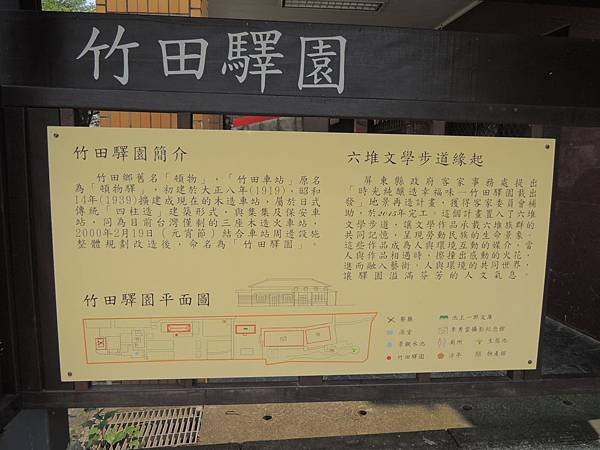 竹田驛園
竹田驛園簡介
竹田鄉舊名「頓物」,「竹田車站」原名
為「頓物驛」,初建於大正八年(1919),昭和
14年(1939)擴建成現在的木造車站,屬於日式
傳統「四柱造」建築形式,與集集及保安車
站,同為目前台灣僅剩的三座木造火車站,
2000年2月19日(元宵節)結合車站周邊設施
整體規劃改造後,命名為「竹田驛園」。
六堆文學步道緣起
屏東縣政府客家事務處提出
「時光純釀造幸福味—竹田驛園截出
發」地景再造計畫,獲得客家委員會補
助,於2013年完工。這個計畫置入了六堆
文學步道,讓文學作品承載六堆族群的
共同記憶,呈現勞動民族的生命景象,
這些作品成為人與環境互動的媒介,當
人與作品相遇時,擦撞出感動的火花,
進而融入藝術、人與環境的共同世界,
讓驛園溢滿芬芳的人文氣息。
竹田驛園平面圖
餐廳
池上一郎文庫
澡堂
李秀雲攝影紀念館
景觀水池
廁所
生態池
竹田驛園
涼亭
物產館